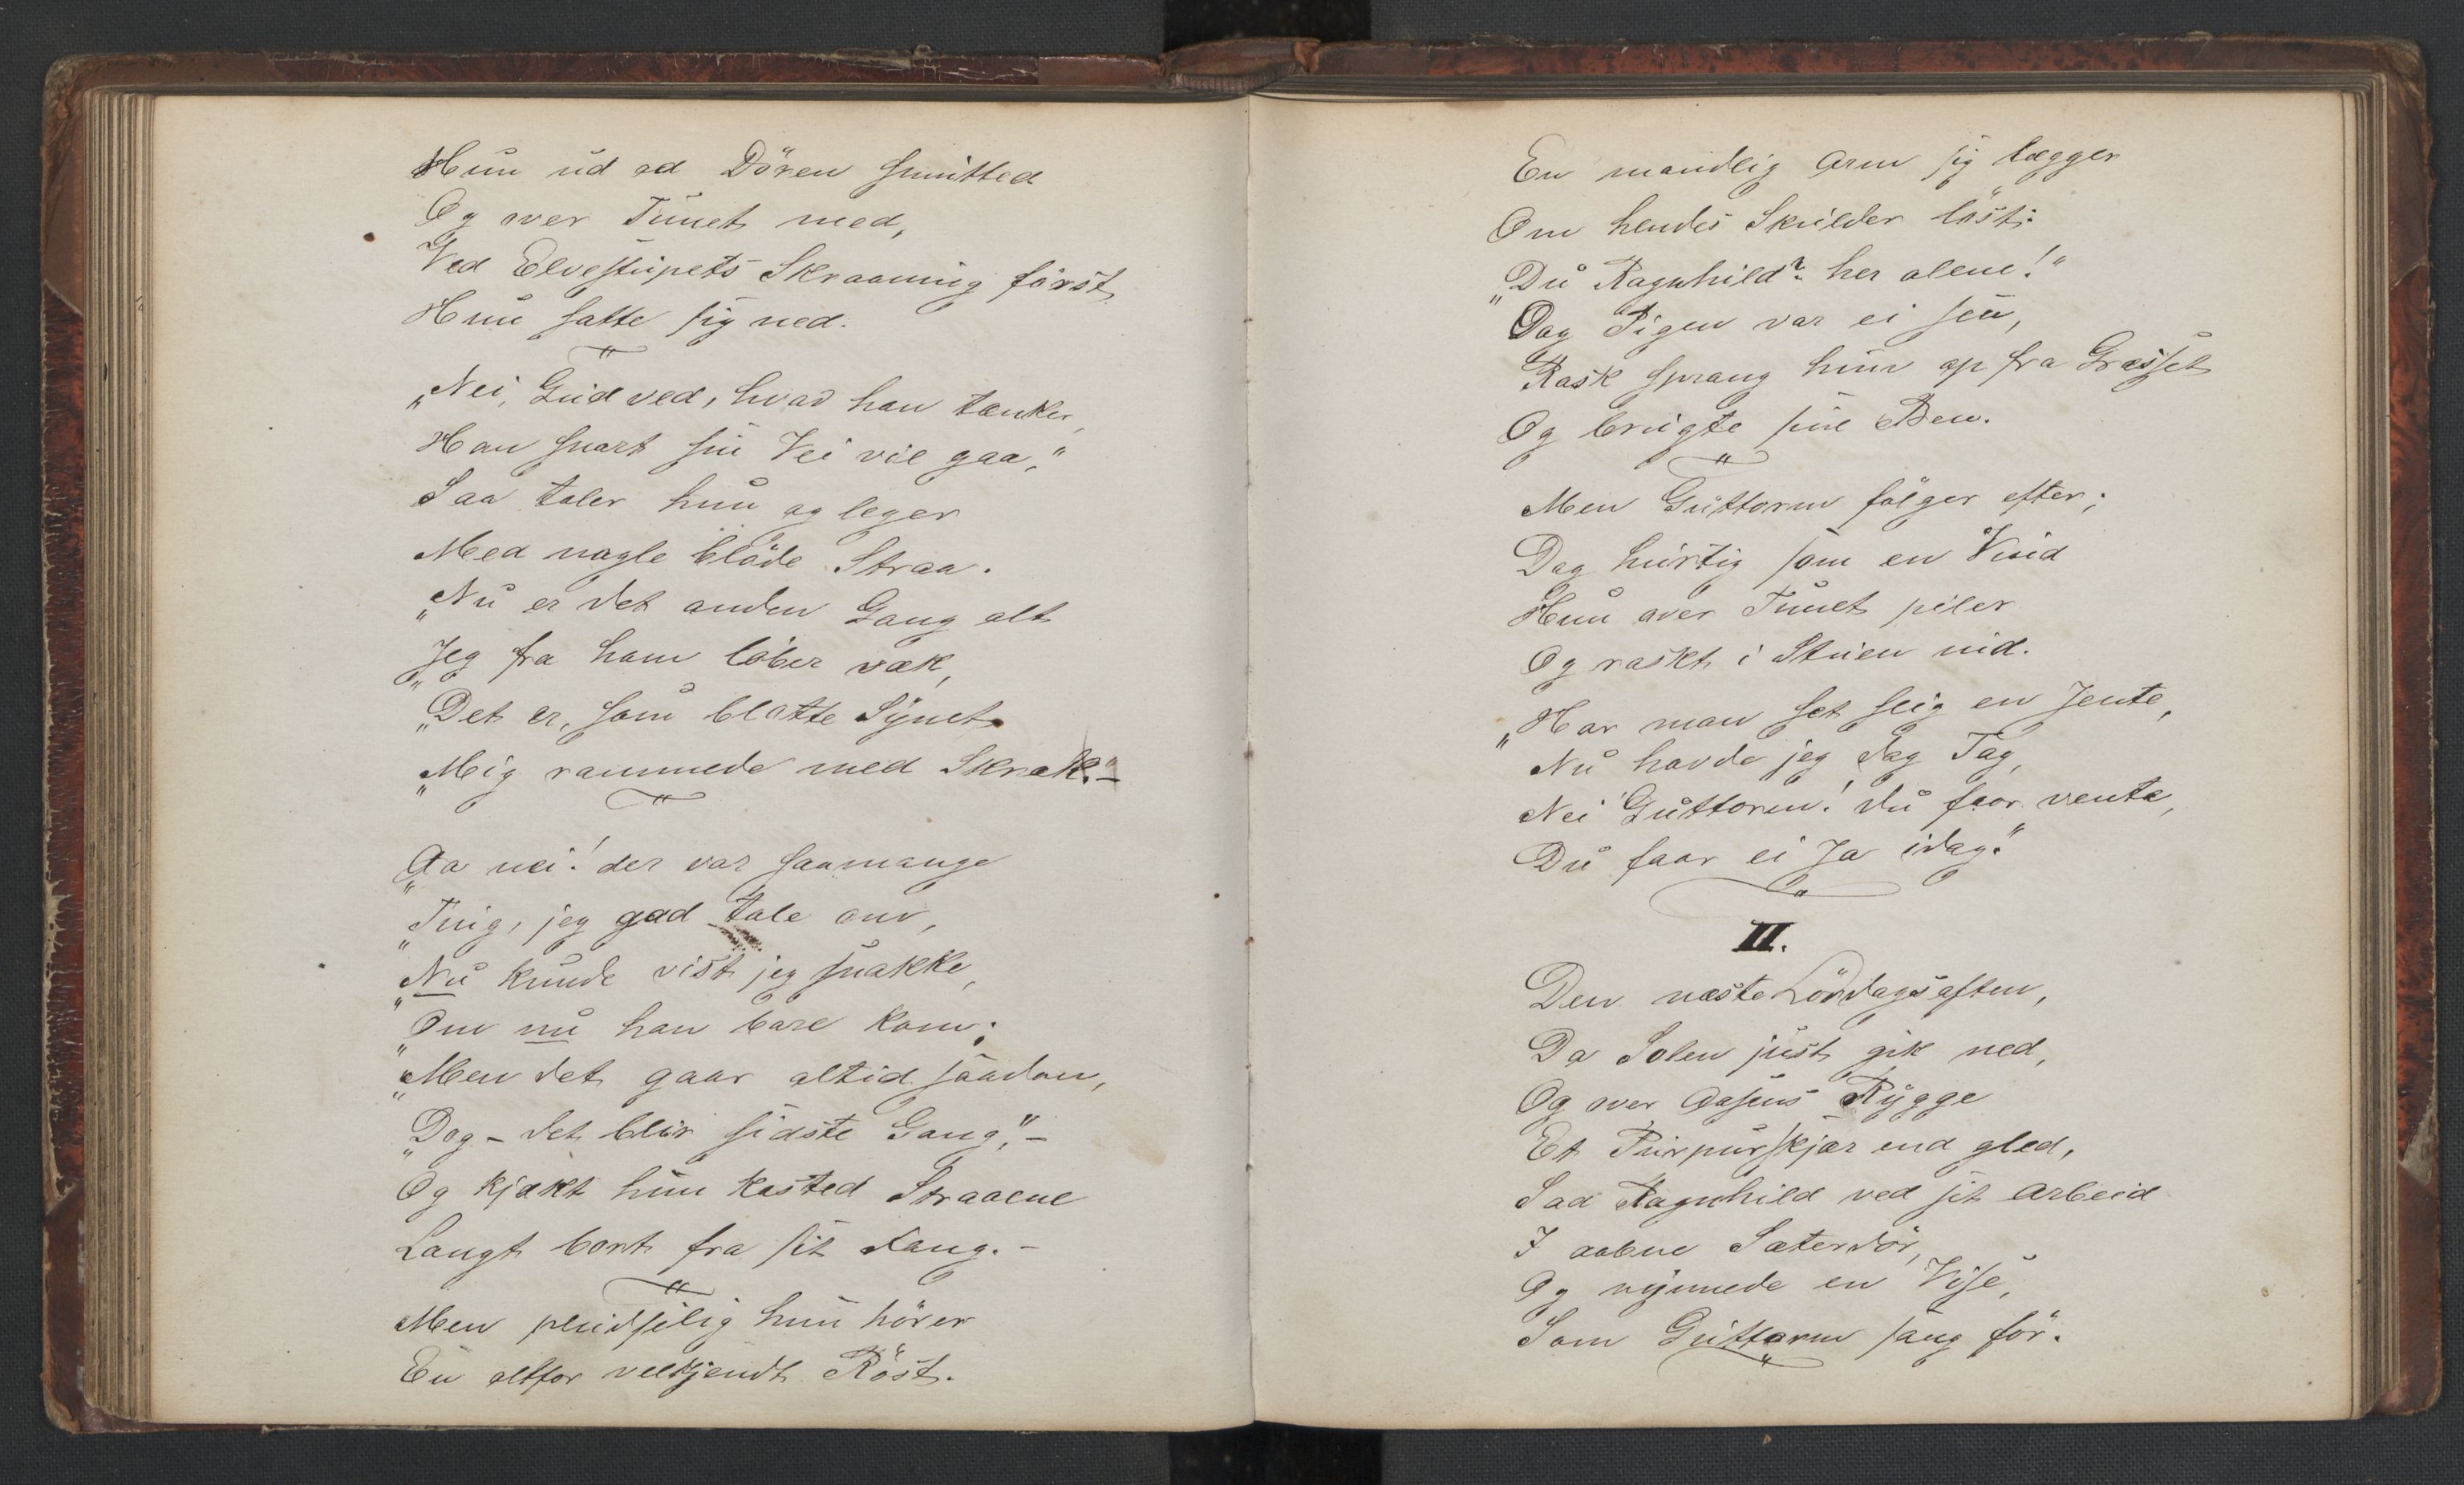 Hun ud ad Dören smutted
Og over Tunet med,
Ved Elvestupets Skraaning först
Hun satte sig ned.
„Nei, Gud ved, hvad han tænker,
Han snart sin Vei vil gaa,"
Saa taler hun og leger
Med nogle blöde Straa.
„Nu er det anden Gang alt
„Jeg fra ham löber væk,
„Det er, som blotte Synet
„Mig rammede med Skræk."–
„Aa nei! der var saamange
„Ting, jeg gad tale om,
„Nu kunde vist jeg snakke,
„Om nu han bare kom;
„Men det gaar altid saadan,
„Dog – det blir sidste Gang,"–
Og kjækt hun kasted Straaene
Langt bort fra sit Fang. –
Men pludselig hun hörer
En altfor velkjendt Röst.
En mandlig Arm sig lægger
Om hendes Skulder löst:
„Du Ragnhild? her alene!"
Dog Pigen var ei sen,
Rask sprang hun op fra Græsset
Og brugte sine Ben.
Men Guttorm fölger efter;
Dog hurtig som en Vind
Hun over Tunet piler
Og raskt i Stuen ind.
„Har man set slig en Jente,
Nu havde jeg dog Tag,
Nei Guttorm! du faar vente,
Du faar ei Ja idag."
II.
Den næste Lördagsaften,
Da Solen just gik ned,
Og over Aasens Rygge
Et Purpurskjær end gled,
Sad Ragnhild ved sit Arbeid
I aabne Sæterdör,
Og nynnede en Vise,
Som Guttorm sang för.